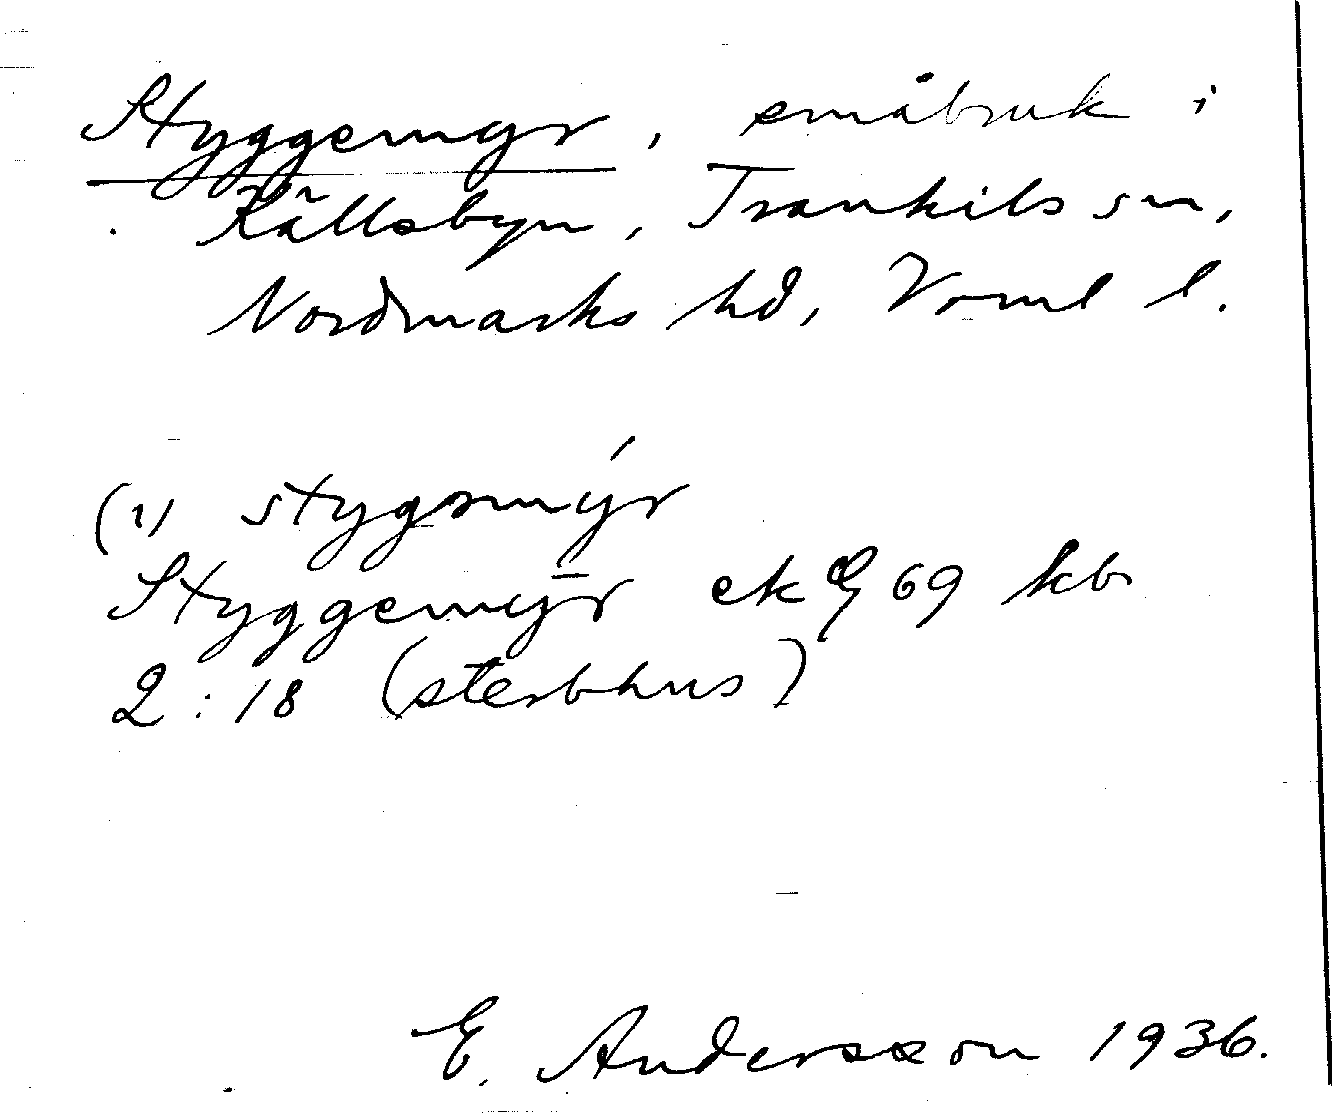 Styggemyr, småbruk i
Källsbyn, Trankils sn,
Nordmarks hd, Verml l.
(1) stygəmýr
Styggemyr ek 69 kb
2:18 (sterbhus)
E. Andersson 1936.